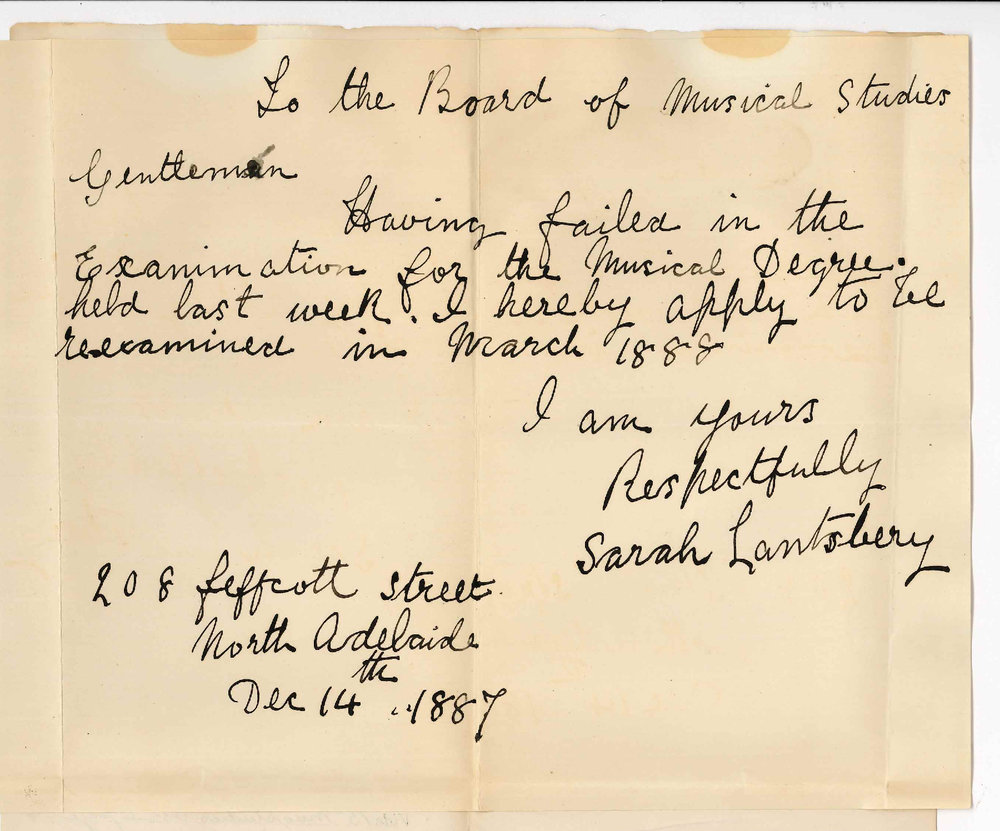 To the Board of Musical Studies
Gentlemen
Having failed in the
Examination for the Musical Degree.
held last week. I hereby apply to be
reexamined in March 1888
I am yours
Respectfully
Sarah Lantsbery
208 Jeffcott Street
North Adelaide
Dec 14th .. 1887